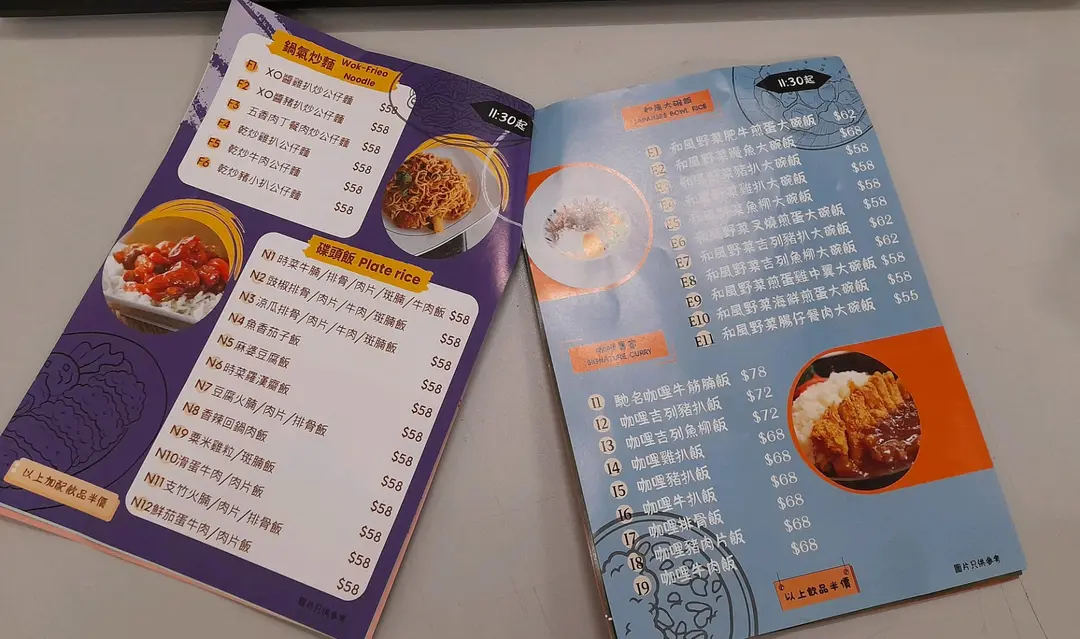 鍋氣炒麵 Wok-Fried Noodle
11:30起
F1 XO醬雞扒炒公仔麵 $58
F2 XO醬豬扒炒公仔麵 $58
F3 五香肉丁餐肉炒公仔麵 $58
F4 乾炒雞扒公仔麵 $58
F5 乾炒牛肉公仔麵 $58
F6 乾炒豬小扒公仔麵 $58
碟頭飯 Plate rice
N1 時菜牛腩/排骨/肉片/斑腩/牛肉飯 $58
N2 豉椒排骨/肉片/牛肉/斑腩飯 $58
N3 涼瓜排骨/肉片/牛肉/斑腩飯 $58
N4 魚香茄子飯 $58
N5 麻婆豆腐飯 $58
N6 時菜羅漢齋飯 $58
N7 豆腐火腩/肉片/排骨飯 $58
N8 香辣回鍋肉飯 $58
N9 粟米雞粒/斑腩飯 $58
N10 滑蛋牛肉/肉片飯 $58
N11 支竹火腩/肉片/排骨飯 $58
N12 鮮茄蛋牛肉/肉片飯 $58
以上加配飲品半價
圖片只供參考
和風大碗飯
JAPANESE BOWL RICE
11:30起
E1 和風野菜肥牛煎蛋大碗飯 $62
E2 和風野菜鰻魚大碗飯 $68
和風野菜豬扒大碗飯 $58
野菜雞扒大碗飯 $58
E5 野菜魚柳大碗飯 $58
E6 和風野菜叉燒煎蛋大碗飯 $58
E7 和風野菜吉列豬扒大碗飯 $62
E8 和風野菜吉列魚柳大碗飯 $62
E9 和風野菜煎蛋雞中翼大碗飯 $58
E10 和風野菜海鮮煎蛋大碗飯 $58
E11 和風野菜腸仔餐肉大碗飯 $55
咖喱
SIGNATURE CURRY
I1 馳名咖喱牛筋腩飯 $78
I2 咖喱吉列豬扒飯 $72
I3 咖喱吉列魚柳飯 $72
I4 咖喱雞扒飯 $68
I5 咖喱豬扒飯 $68
I6 咖喱牛扒飯 $68
I7 咖喱排骨飯 $68
I8 咖喱豬肉片飯 $68
I9 咖喱牛肉飯 $68
以上飲品半價
圖片只供參考